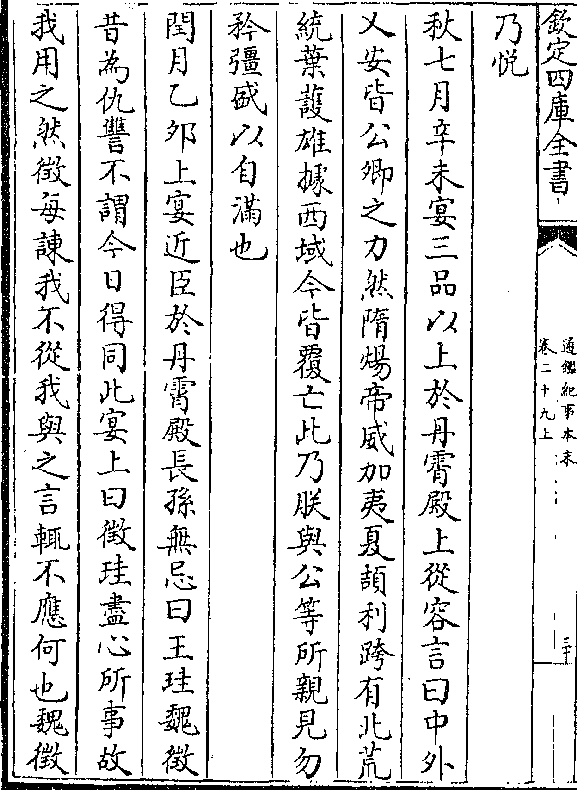 欽定四庫全書
通鑑紀事本末
卷二十九上
三十
乃悦
秋七月辛未宴三品以上於丹霄殿上從容言曰中外
乂安皆公卿之力然隋煬帝威加夷夏頡利跨有北荒
統葉䕶雄據西域今皆覆亡此乃朕與公等所親見勿
矜彊盛以自滿也
閏月乙夘上宴近臣於丹霄殿長孫無忌曰王珪魏徵
昔為仇讐不謂今日得同此宴上曰徵珪盡心所事故
我用之然徵每諫我不從我與之言輒不應何也魏徵